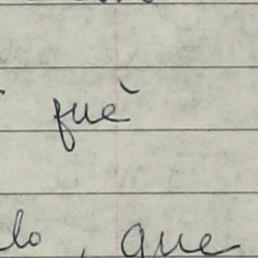 fuè
lo, que